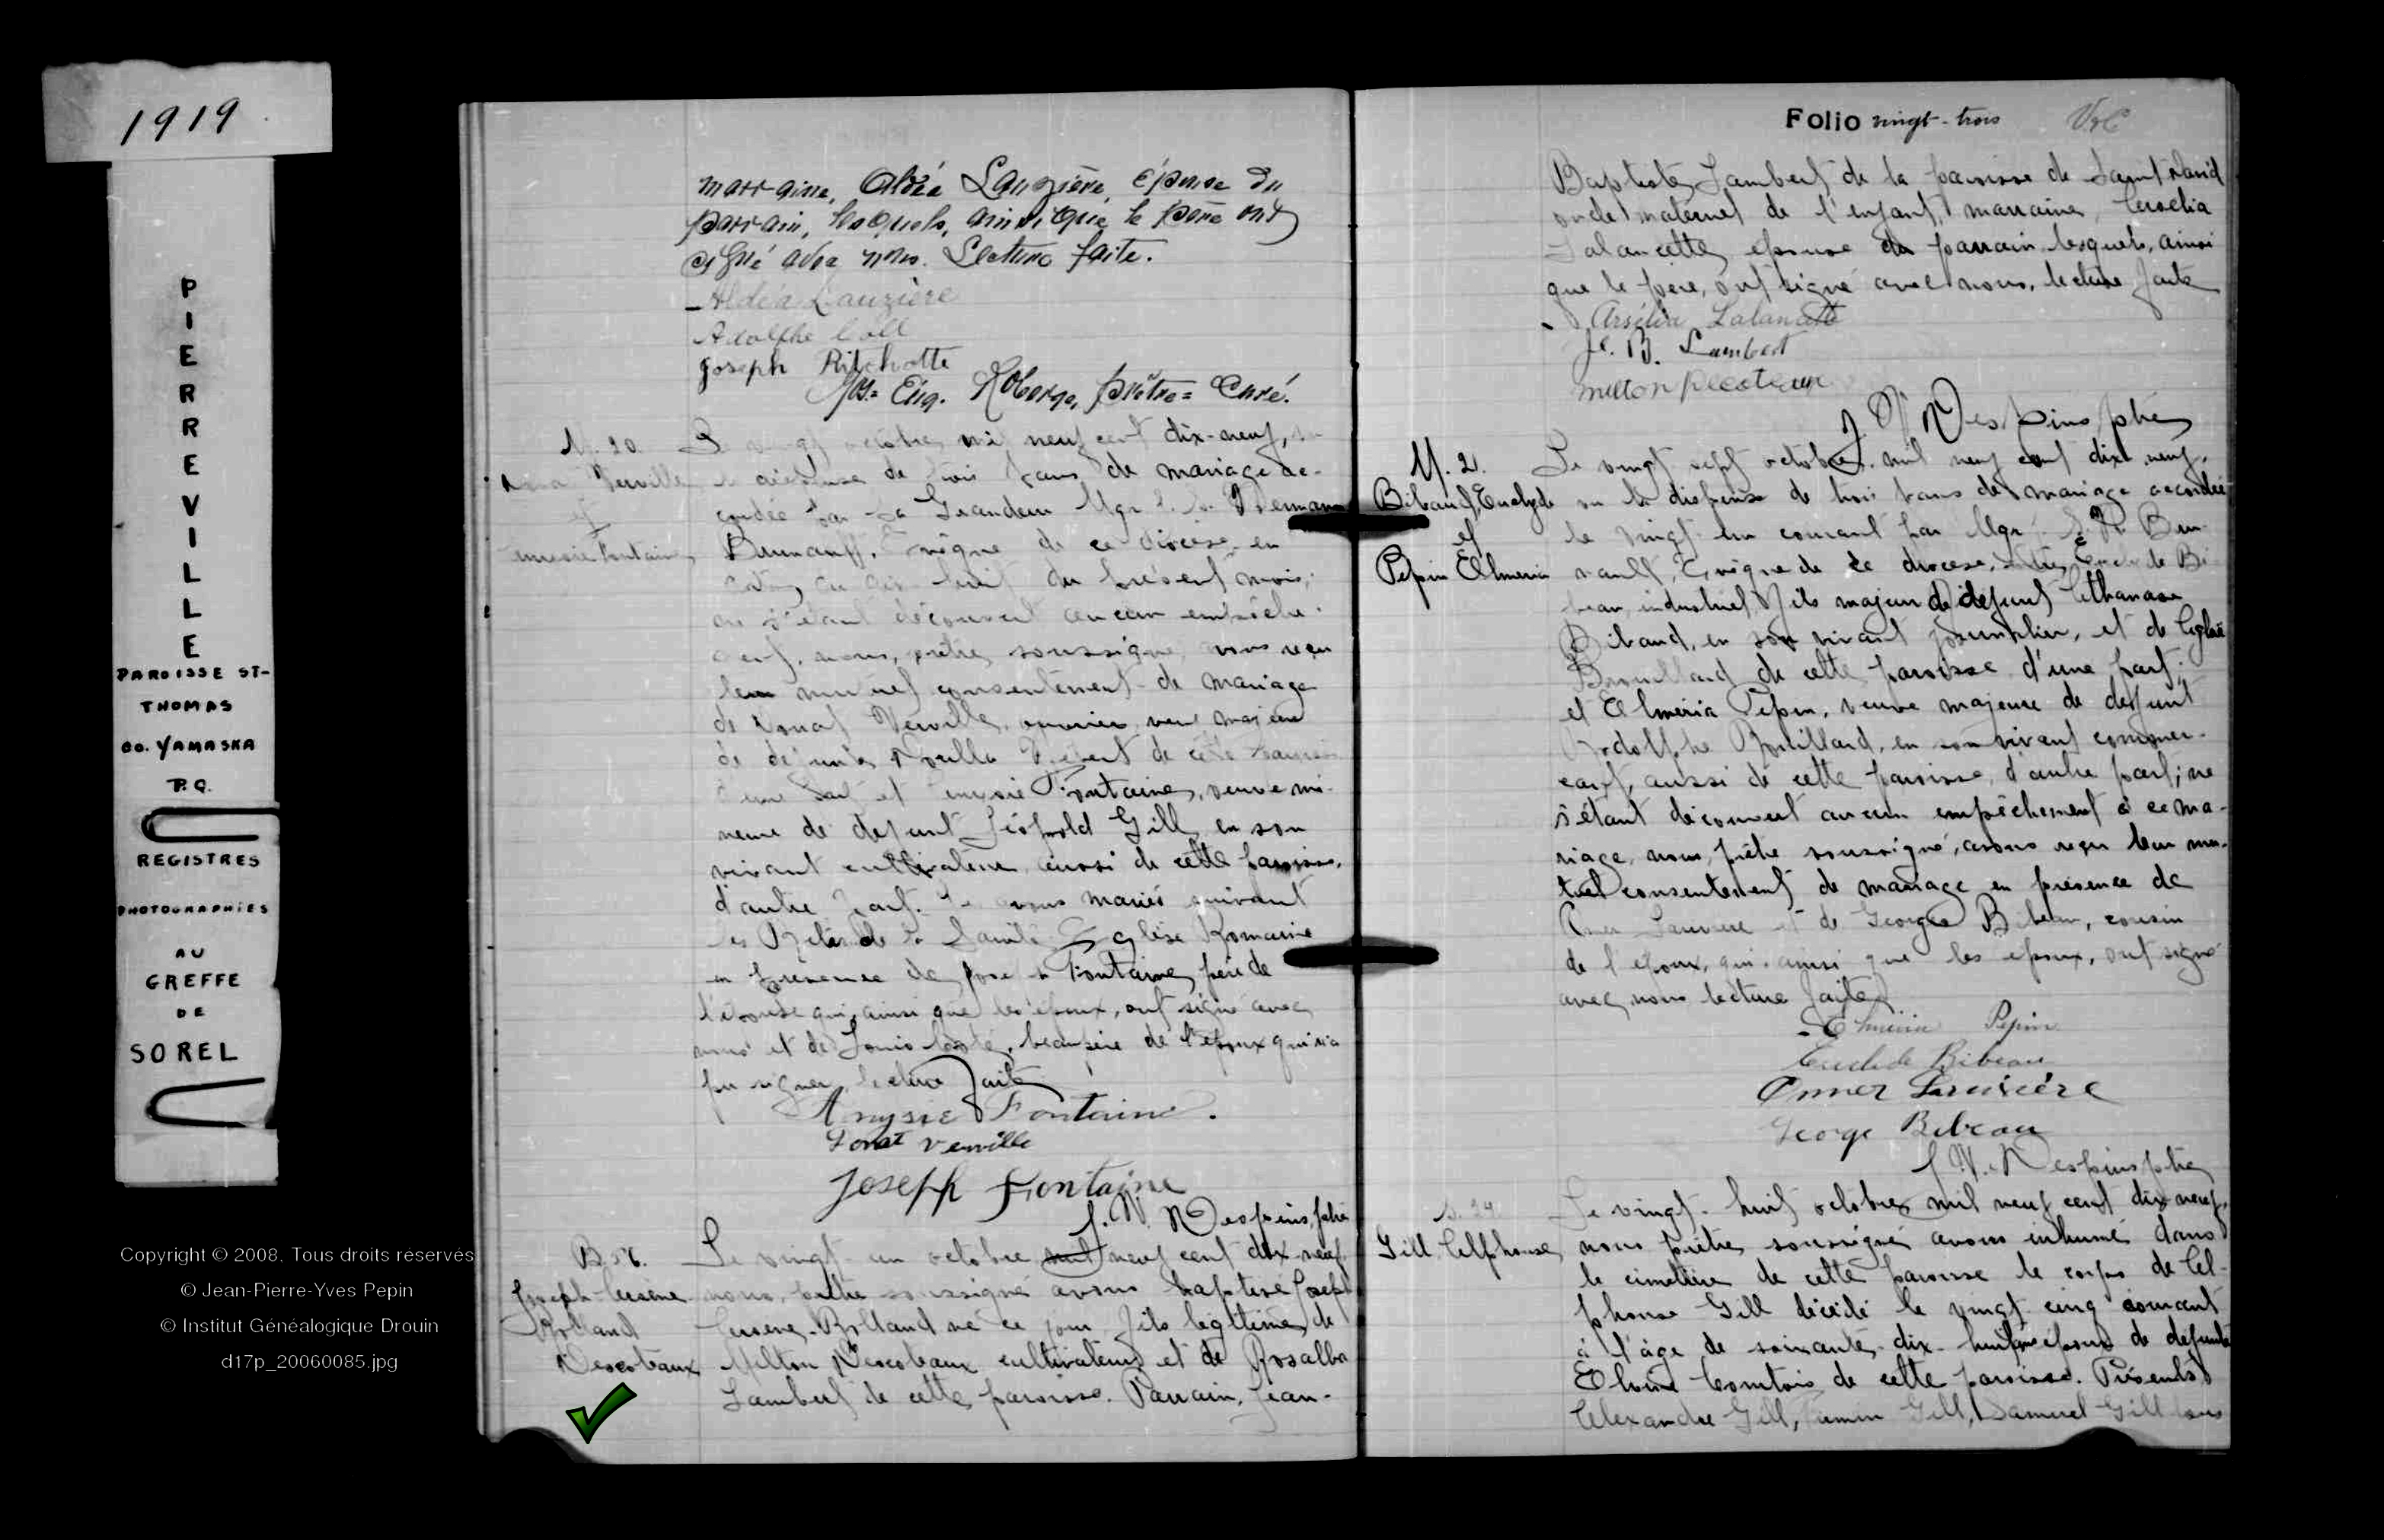 1919
PIERREVILLE
PAROISSE ST-
THOMAS
CO. YAMASKA
P.Q.
REGISTRES
PHOTOGRAPHIES
AU
GREFFE
DE
SOREL
Copyright © 2008, Tous droits réservés
© Jean-Pierre-Yves Pepin
© Institut Généalogique Drouin
d17p_20060085.jpg
marraine, Aldéa Lauzière, épouse du
parrain, lesquels, ainsi que le père ont
signé avec nous. Lecture faite.
Aldéa Lauzière
Adolphe Coll
Joseph Ritchotte
Jos. Eug. Roberge, prêtre = Curé.
M. 20.
Verville
et
Fontaine
Le vingt octobre mil neuf cent dix-neuf, vu
la dispense de trois bans de mariage ac-
cordée par Sa Grandeur Mgr Hermann
Brunault, Evêque de ce diocèse, en
date du dix huit du présent mois,
ne s'étant découvert aucun empêche-
ment, nous, prêtre soussigné, avons reçu
leur mutuel consentement de mariage
de Donat Verville, ouvrier, veuf majeur
de défunte Hébert de cette paroisse
d'une part et Fontaine, veuve mi-
neure de defunt Léopold Gill en son
vivant cultivateur aussi de cette paroisse,
d'autre part. avons mariés suivant
les Rites de la Sainte Eglise Romaine
en présence de Joseph Fontaine, père de
l'épouse qui, ainsi que les époux, ont signé avec
nous et de Louis Coté, beaupère de l'époux qui n'a
pu signer, lecture faite
Anysie Fontaine.
Donat Verville
Joseph Fontaine
J. N. Despins, ptre
B 56.
Joseph-Arsène
Rolland
Descoteaux
Le vingt-un octobre mil neuf cent dix-neuf,
nous, prêtre soussigné avons baptisé Joseph
Arsène-Rolland né ce jour fils légitime de
Milton Descoteaux cultivateur et de Rosalba
Lambert de cette paroisse. Parrain, Jean-
Folio vingt-trois
Baptiste Lambert de la paroisse de Saint David
oncle maternel de l'enfant, marraine, Arsélia
Lalancette, épouse du parrain lesquels, ainsi
que le père, ont signé avec nous, lecture faite
Arsélia Lalancette
Je. B. Lambert
Milton Descoteaux
J N Despins ptre
M. 21.
Bibaud, Euclyde
et
Pepin Elmeria
Le vingt sept octobre mil neuf cent dix neuf,
vu la dispense de trois bans de mariage accordée
le vingt-un courant par Mgr Bru-
nault, Evêque de ce diocèse, entre Euclyde Bi
beau, industriel, fils majeur de défunt Athanase
Bibaud, en son vivant journalier, et de Aglaé
Brouillard de cette paroisse d'une part;
et Elmeria Pepin, veuve majeure de defunt
Adolphe Brouillard, en son vivant commer-
çant, aussi de cette paroisse, d'autre part; ne
s'étant découvert aucun empêchement à ce ma-
riage, nous, prêtre soussigné, avons reçu leur mu-
tuel consentement de mariage en présence de
Omer Lauzière et de Georges Bibeau, cousin
de l'époux, qui, ainsi que les époux, ont signé
avec nous lecture faite
Elmeria Pepin
Euclide Bibeau
Omer Lauzière
George Bibeau
J. N. Despins ptre
S. 24.
Gill Alphonse
Le vingt-huit octobre mil neuf cent dix neuf,
nous prêtre soussigné avons inhumé dans
le cimetière de cette paroisse le corps de Al-
phonse Gill décédé le vingt cinq courant
à l'âge de soixante-dix-huit ans époux de defunte
Eloïse Comtois de cette paroisse. Présents
Alexandre Gill, Firmin Gill, Samuel Gill tous